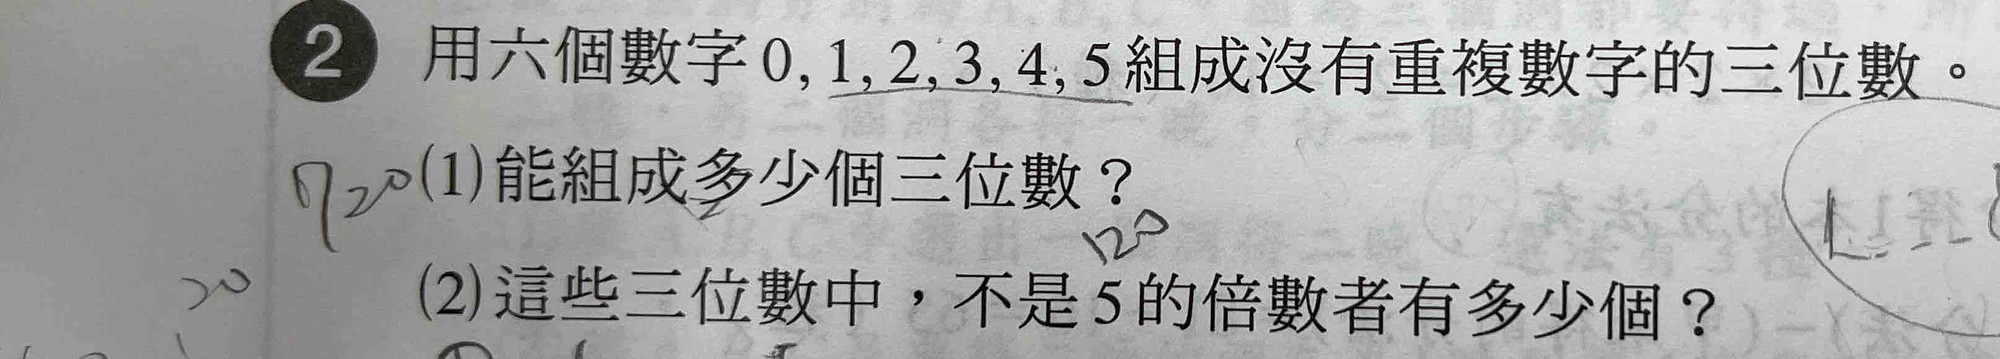 2 用六個數字0, 1, 2, 3, 4, 5組成沒有重複數字的三位數。
720 (1)能組成多少個三位數？
120
20
(2)這些三位數中，不是5的倍數者有多少個？